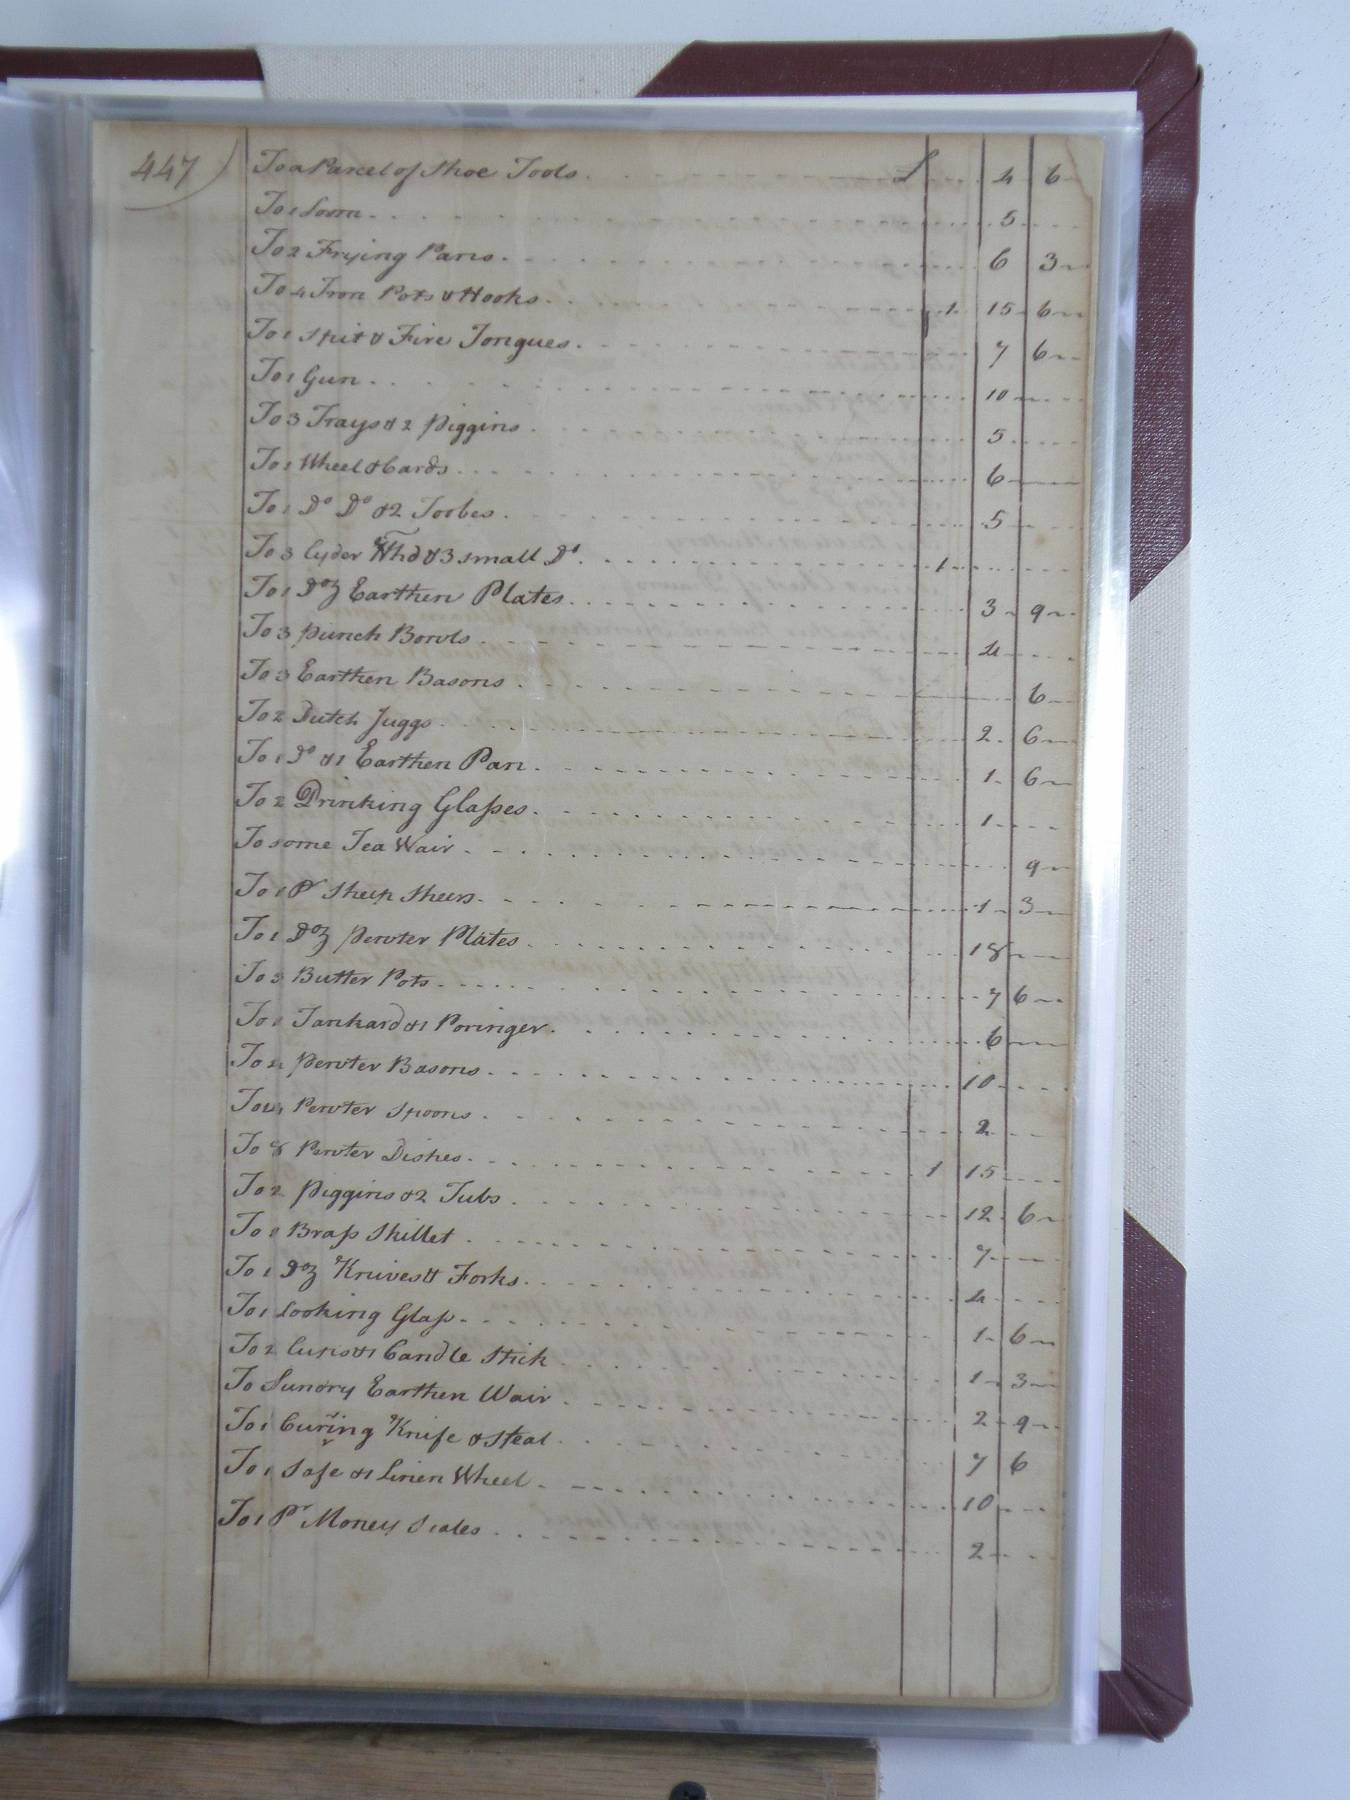 447)
To a Parcel of Shoe Tools £ 4 6
To 1 Loom 5
To 2 Frying Pans 6 3
To 4 Iron Pots & Hooks 1 15 6
To 1 Spit & Fire Tongues 7 6
To 1 Gun 10
To 3 Trays & 2 Piggins 5
To 1 Wheel & Cards 6
To 1 Do Do & 2 Toobes 5
To 3 Cyder Hhd & 3 small Do 1
To 1 Doz Earthen Plates 3 9
To 3 Punch Bowls 4
To 3 Earthen Basons 6
To 2 Dutch Juggs 2 6
To 1 Do & 1 Earthen Pan 1 6
To 2 Drinking Glasses 1
To some Tea Wair 9
To 1 Pr Sheep Sheers 1 3
To 1 Doz Pewter Plates 18
To 3 Butter Pots 7 6
To 1 Tankard & 1 Poringer 6
To 4 Pewter Basons 10
To Pewter Spoons 2
To 8 Pewter Dishes 1 15
To 2 Piggins & 2 Tubs 12 6
To 1 Brass Skillet 7
To 1 Doz Knives & Forks 4
To 1 Looking Glass 1 6
To 2 Cups & 1 Candle Stick 1 3
To Sundry Earthen Wair 2 9
To 1 Curving Knife & Steal 7 6
To 1 Safe & 1 Linen Wheel 10
To 1 Pr Money Scales 2